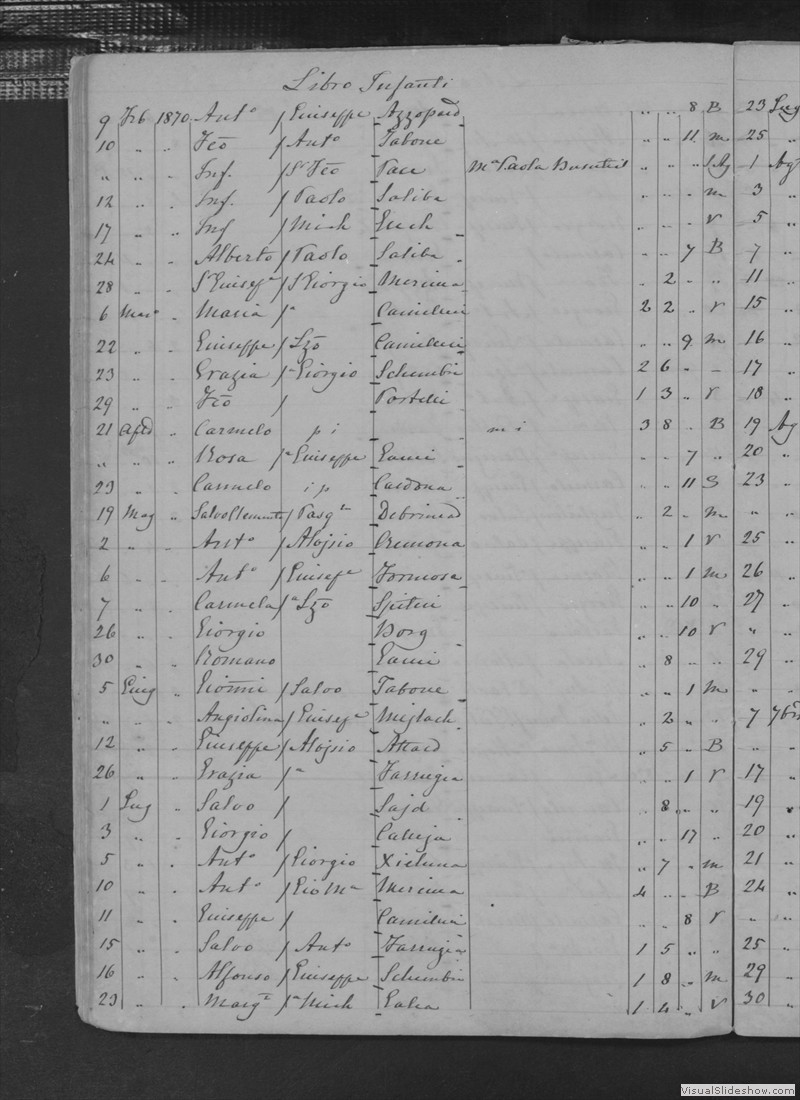 Libro Infanti
9 Feb 1870 Ant° / Giuseppe Azzopard " " 8 B 23 Lug
10 " " Fcō / Ant° Tabone " " 11 m 25 "
" " " Inf. / S Fcō Pace Mª Paola Busuttil " " " 1 Ag
12 " " Inf. / Paolo Saliba " " " m 3 "
17 " " Inf / Mich " " " V 5 "
24 " " Alberto / Paolo Saliba " " 7 B 7 "
28 " " / S Giorgio " 2 " " 11 "
6 Mar " Maria /ª Camilleri 2 2 " V 15 "
22 " " Giuseppe / Lzō Camilleri " " 9 m 16 "
23 " " Grazia /ª Giorgio Schembri 2 6 " " 17 "
29 " " Fcō / Portelli 1 3 " V 18 "
21 " Carmelo p i m i 3 8 " B 19 Ag
" " " Rosa /ª Giuseppe " " 7 " 20 "
23 " " Carmelo i p Cardona " " 11 S 23 "
19 Mag " / Pasqᵉ " 2 " m " "
2 " " Ant° / Alojsio Cremona " " 1 V 25 "
6 " " Ant° / Giusepᵉ Formosa " " 1 m 26 "
7 " " Carmela /ª Lzō Spiteri " " 10 " 27 "
26 " " Giorgio Borg " " 10 V " "
30 " " Romano " 8 " " 29 "
5 Giug " / Salvo Tabone " " 1 m " "
" " " Angiolina / Giusepᵉ " 2 " " 7 7bre
12 " " Giuseppe / Alojsio Attard " 5 " B " "
26 " " Grazia /ª Farrugia " " 1 V 17 "
1 Lug " Salvo / Sajd " 8 " " 19 "
3 " " Giorgio / Calleja " " 17 " 20 "
5 " " Ant° / Giorgio Xicluna " 7 " m 21 "
10 " " Ant° / 4 " " B 24 "
11 " " Giuseppe / Camilleri " " 8 V " "
15 " " Salvo / Ant° Farrugia 1 5 " " 25 "
16 " " Alfonso / Giuseppe Schembri 1 8 " m 29 "
23 " " Margᵗ /ª Mich Galea 1 4 " V 30 "
VisualSlideshow.com